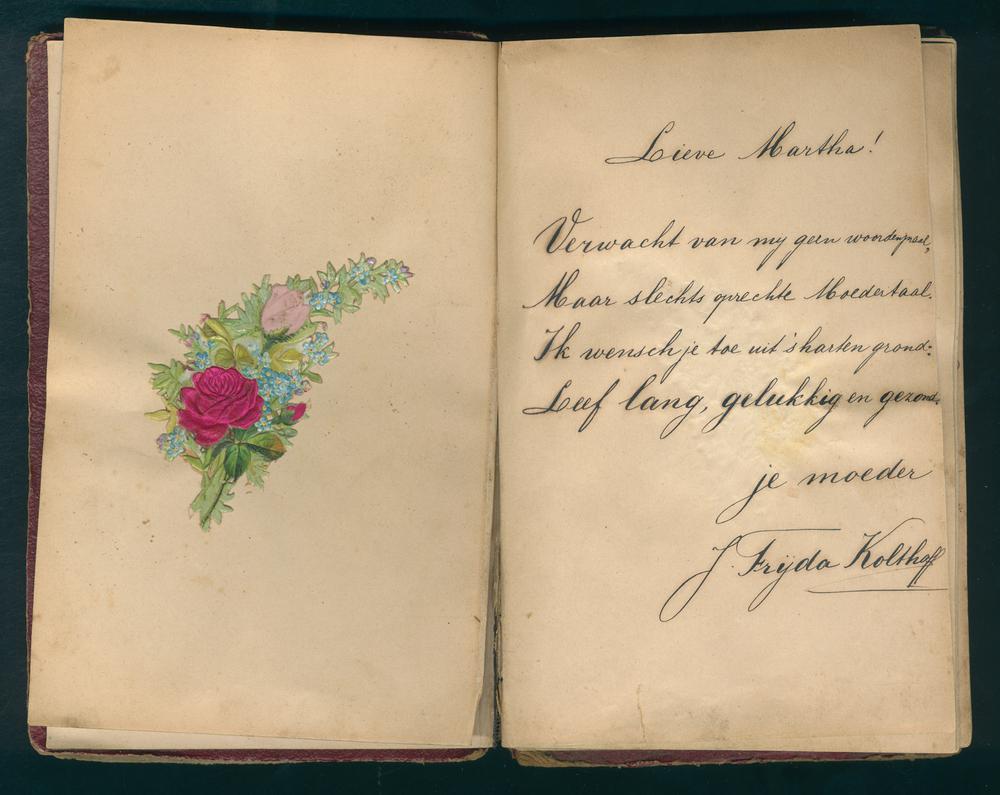 Lieve Martha!
Verwacht van my geen woordenpraal,
Maar slechts oprechte Moedertaal.
Ik wensch je toe uit 's harten grond:
Leef lang, gelukkig en gezond.
je moeder
J. Frijda Kolthoff